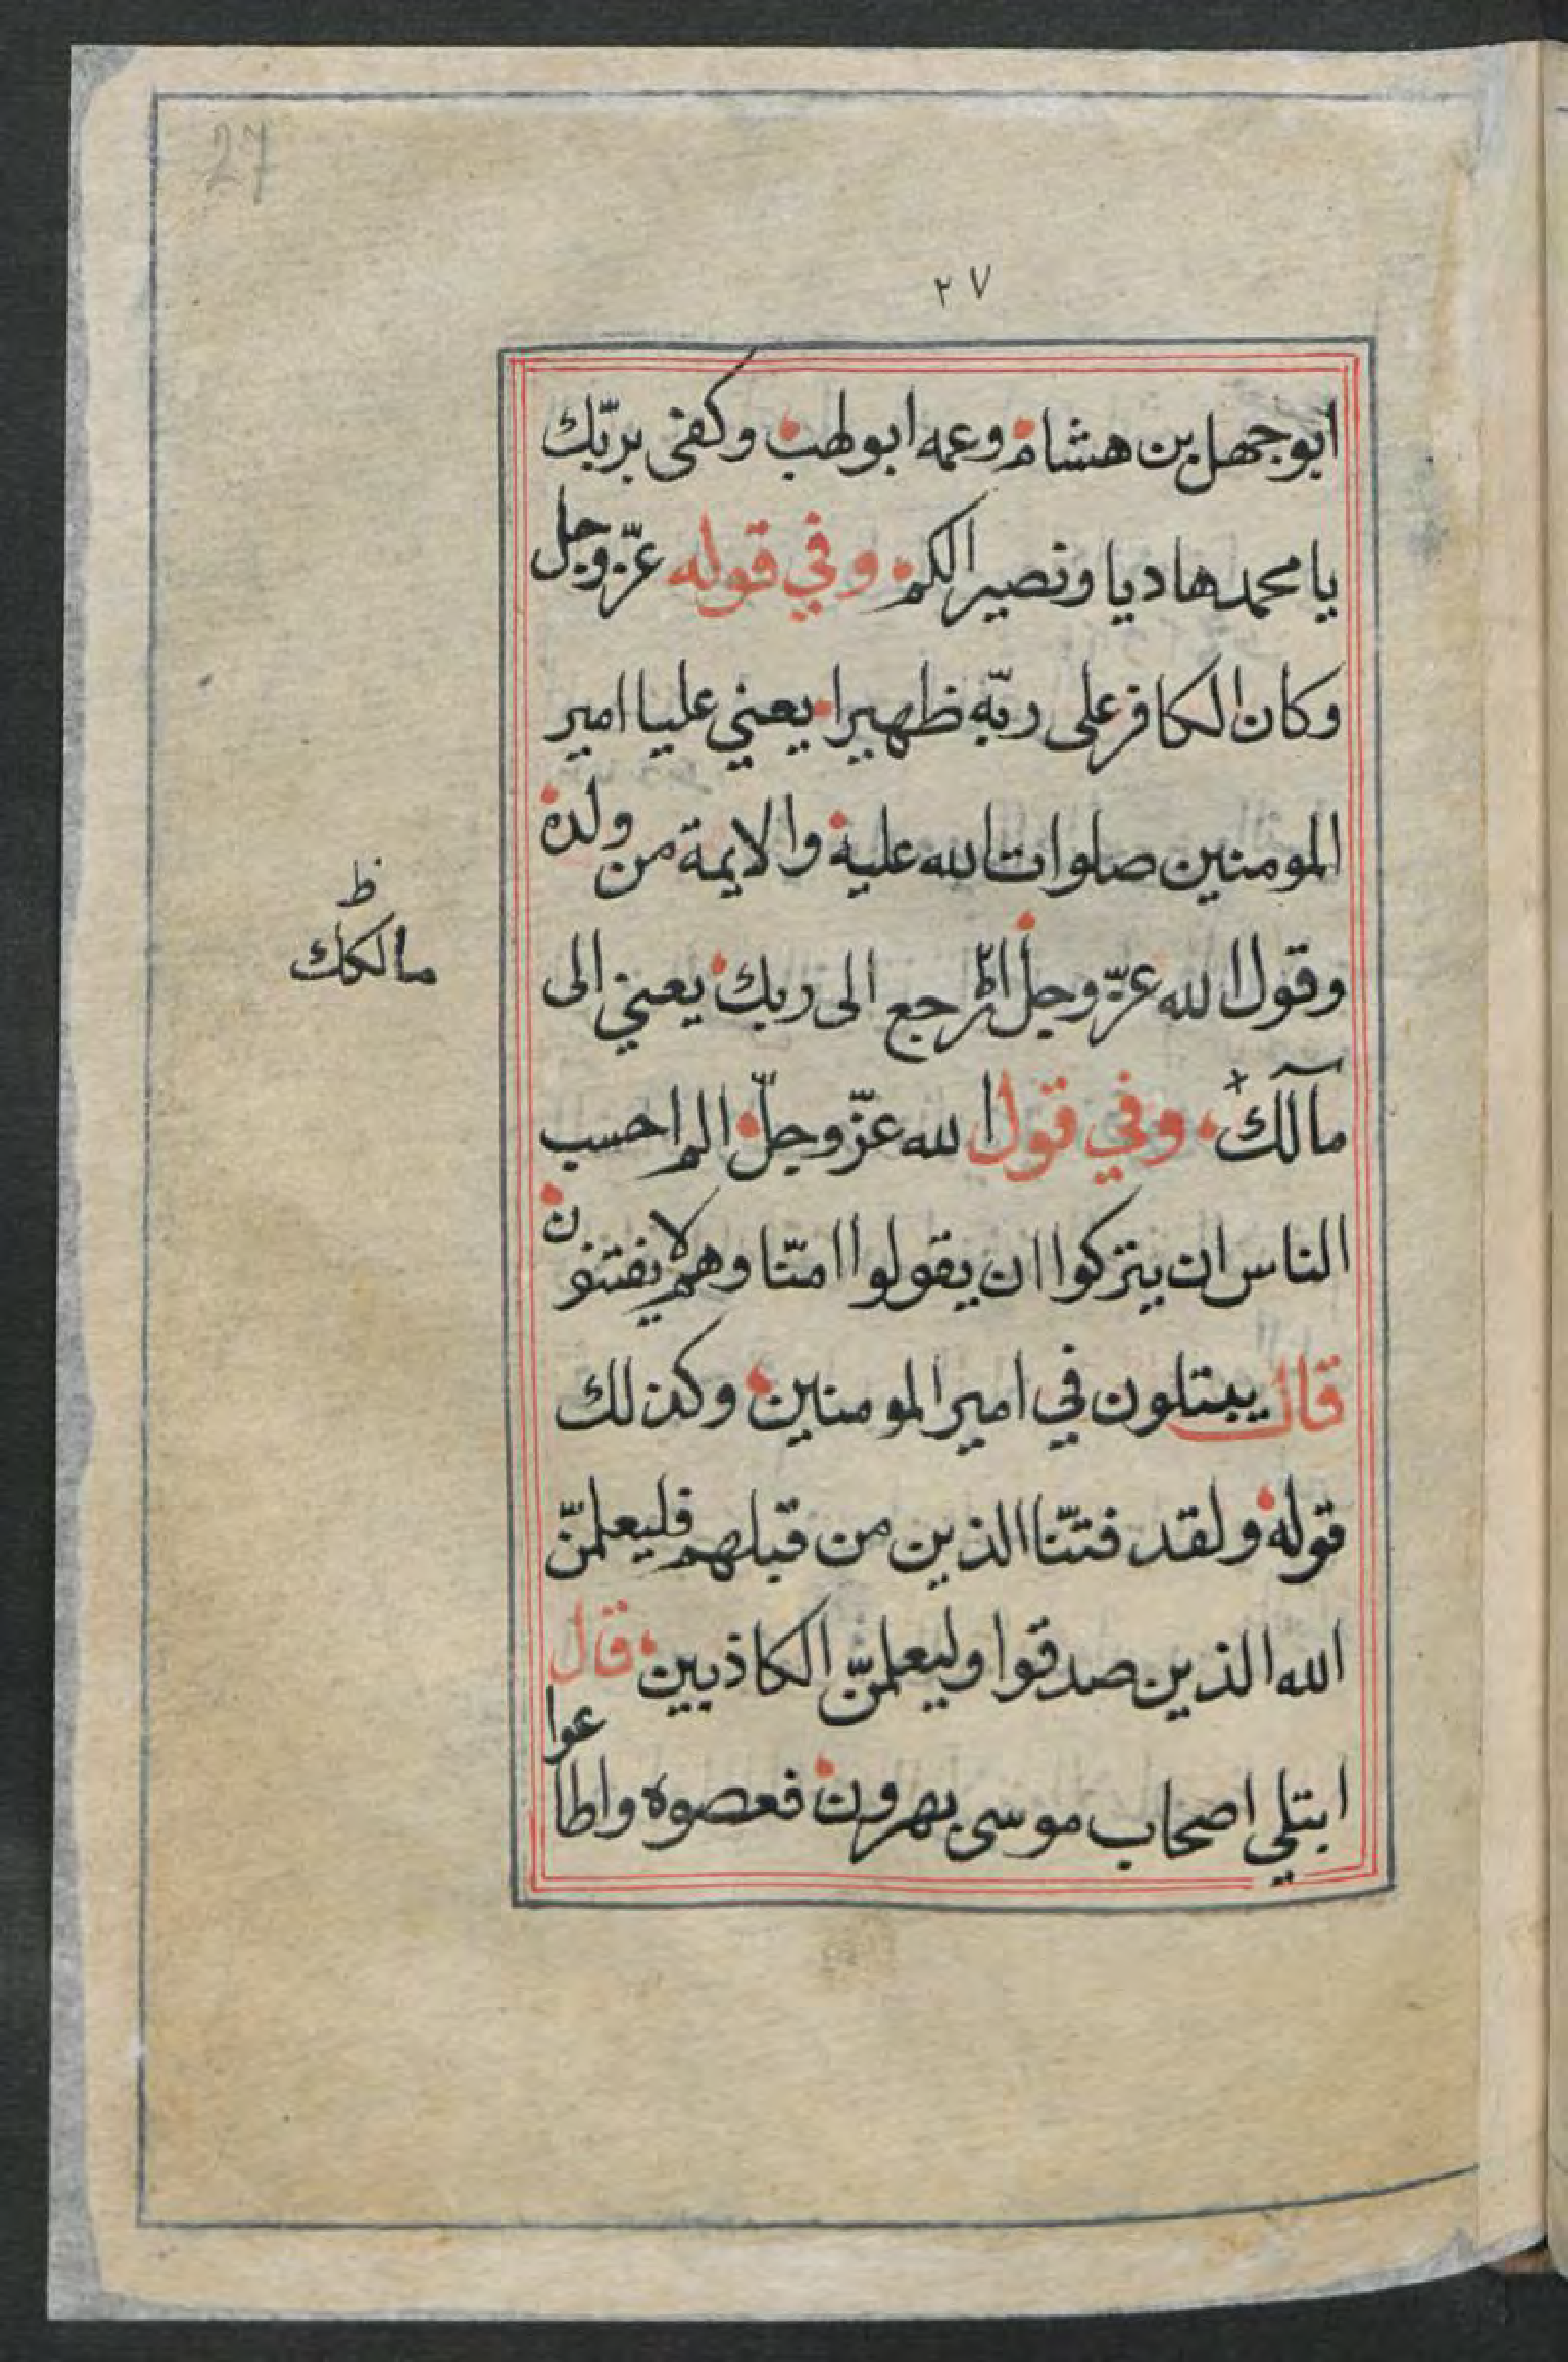 27
٢٧
ابوجهل بن هشام وعمه ابولهب وكفى بربّك
يا محمد هاديا ونصيرا لكم وفي قوله عزّ وجل
وكان الكافر على ربّه ظهيرا يعني عليا امير
المومنين صلوات الله عليه والايمة من ولده
وقول الله عزّ وجل ارجع الى ربك يعني الى
مآلك وفي قول الله عزّ وجلّ الم احسب
الناس ان يتركوا ان يقولوا امنّا وهم لا يفتنون
قال يبتلون في امير المومنين وكذلك
قوله ولقد فتنّا الذين من قبلهم فليعلمنّ
الله الذين صدقوا وليعلمنّ الكاذبين قال
ابتلي اصحاب موسى بهرون فعصوه واطاعوا
ظ
مالكك